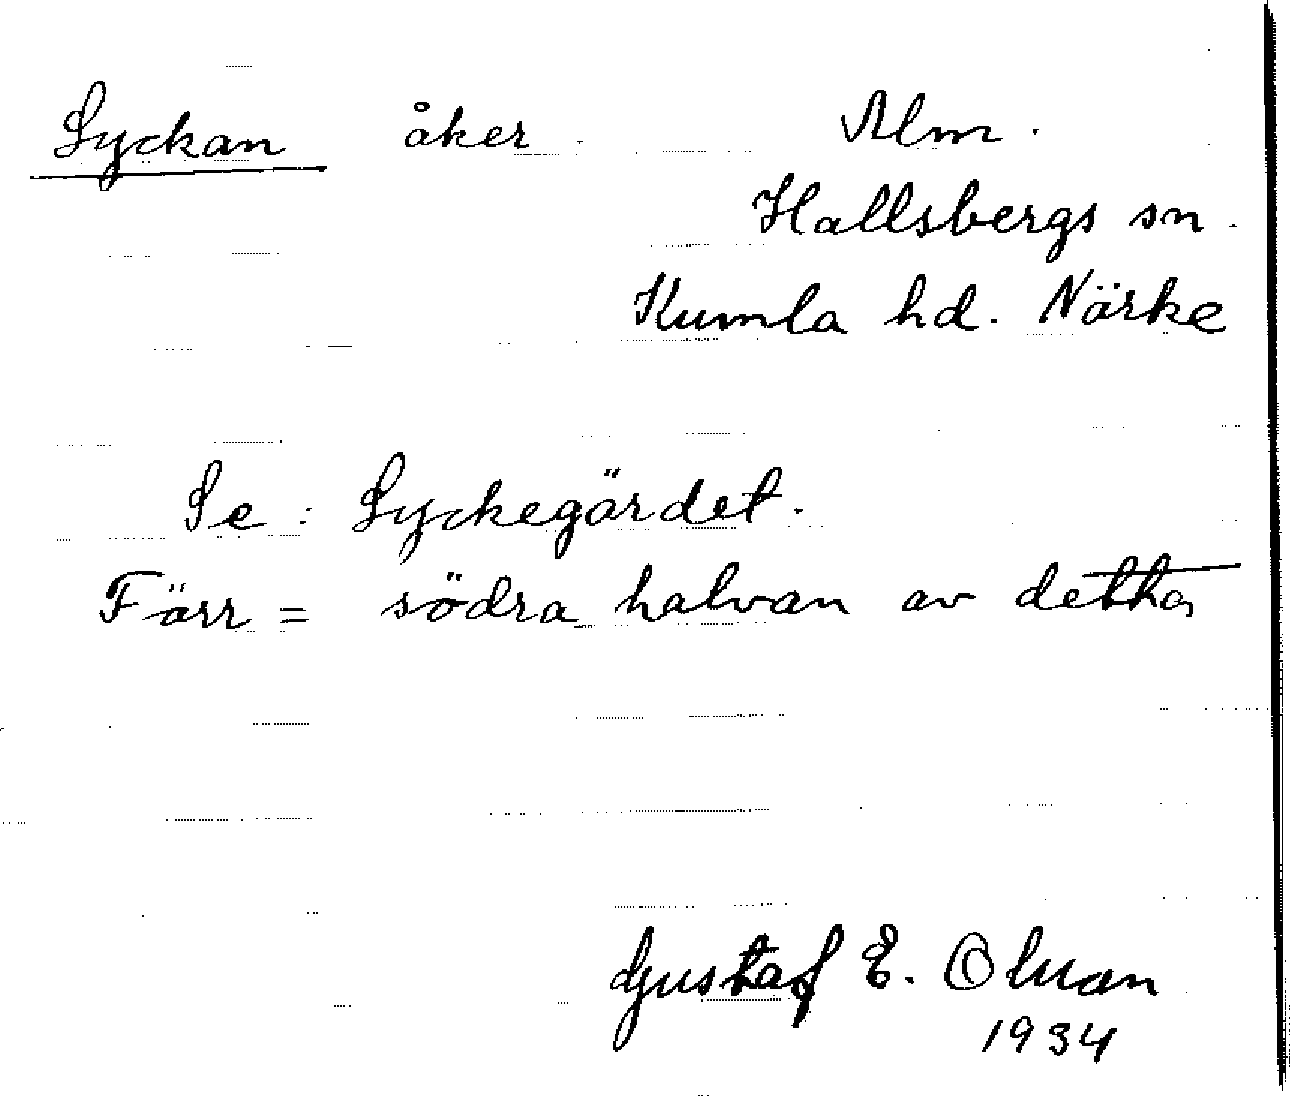 Lyckan åker. Alm.
Hallsbergs sn.
Kumla hd. Närke
Se: Lyckegärdet.
Färr = södra halvan av detta
Gustaf E. Olsson
1934